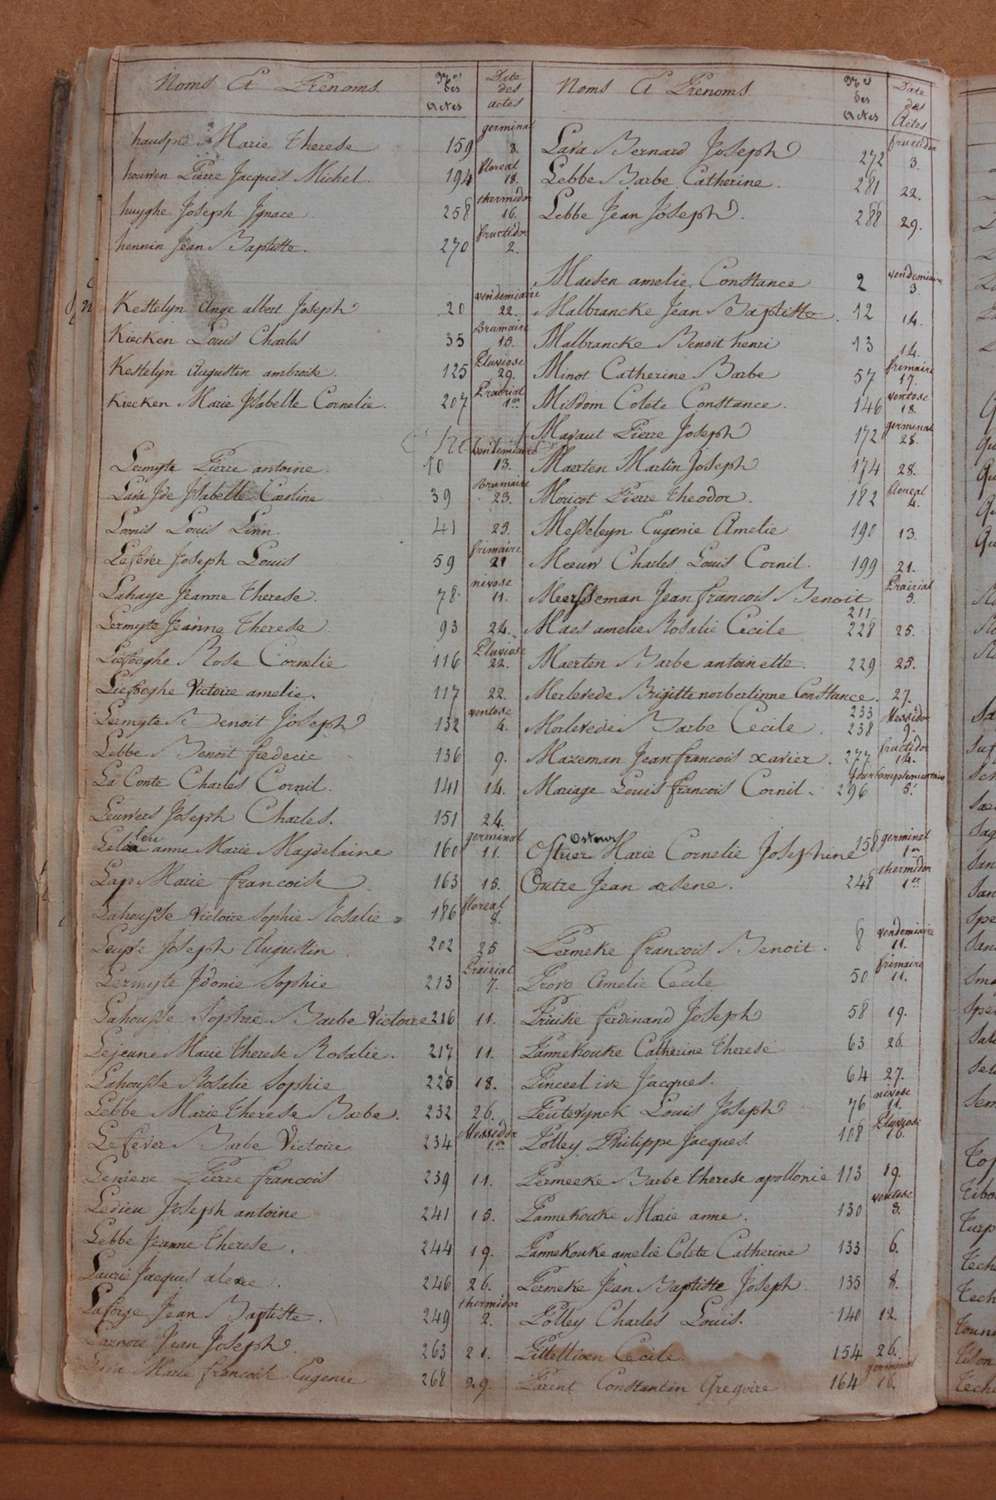 Noms & Prenoms
N.os des Actes
Date des actes
hauspie Marie therese 159 germinal 8.
houwen Pierre Jacques Michel 194 floreal 18.
huyghe Joseph Ignace 258 thermidor 16.
hennin Jean Baptiste. 270 fructidor 2.
Kestelyn Ange albert Joseph 20 vendemiaire 22.
Kiecken Louis Charles 35 Brumaire 15.
Kestelyn Augustin ambroise. 125 Pluviose 29.
Kiecken Marie Isabelle Cornelie. 207 Prairial 1er
Lermyte Pierre antoine 10 vendemiaire 13.
Lara Ide Isabelle Caroline 39 Brumaire 23.
Loonis Louis Linn. 41 25.
Lefever Joseph Louis 59 frimaire 21
Lahaye Jeanne therese. 78 nivose 11.
Lermyte Jeanne therese 93 24.
Liefooghe Rose Cornelie 116 Pluviose 22.
Liefooghe Victoire amelie. 117 22.
Lermyte Benoit Joseph 132 ventose 6.
Lebbe Benoit frederic 136 9.
La Conte Charles Cornil. 141 14.
Leurvers Joseph Charles. 151 24.
anne Marie Magdelaine 160 germinal 11.
Lap Marie francoise 163 15.
Lahousse Victoire Sophie Rosalie 186 floreal 8.
Leupe Joseph Augustin 202 25
Lermyte Idonie Sophie 213 Prairial 7.
Lahousse Sophie Barbe Victoire 216 11.
Lejeune Marie therese Rosalie. 217 11.
Lahousse Rosalie Sophie 225 18.
Lebbe Marie therese Barbe. 232 26.
Lefever Barbe Victoire 234 Messidor 1er
Pierre francois 239 11.
Lerieu Joseph antoine 241 15.
Lebbe Jeanne therese. 244 19.
Laurie Jacques alexe. 246 26.
Laforge Jean Baptiste. 249 thermidor 2.
Jean Joseph. 263 21.
Marie francoise Eugenie 268 29.
Noms & Prenoms
N.os des Actes
Date des Actes
Lara Bernard Joseph 272 fructidor 3.
Lebbe Barbe Catherine. 281 22.
Lebbe Jean Joseph. 288 29.
Maesen amelie Constance 2 vendemiaire 3
Malbrancke Jean Baptiste. 12 14.
Malbrancke Benoit henri 13 14.
Minot Catherine Barbe 57 frimaire 17.
Misdom Colete Constance. 146 ventose 18.
Mahaut Pierre Joseph 172 germinal 28.
Maerten Martin Joseph 174 28.
Moricot Pierre theodor. 182 floreal 4.
Messeleyn Eugenie Amelie 190 13.
Mœuw Charles Louis Cornil. 199 21.
Meersseman Jean francois Benoit 211 Prairial 3.
Maes amelie Rosalie Cecile 228 25.
Maerten Barbe antoinette. 229 25.
Merlevede Brigitte norbertinne Constance. 233 27.
Merlevede Barbe Cecile. 238 Messidor 9.
Mazeman Jean francois xavier. 277 fructidor 14.
Mariage Louis francois Cornil. 296 Jour Complementaire 5.
Ostrier Marie Cornelie Josephine 158 germinal 1er
Outre Jean arsene. 248 thermidor 1er
Permeke francois Benoit. 8 vendemiaire 11.
Provo Amelie Cecile 50 frimaire 11.
Pruiske ferdinand Joseph 58 19.
Pannekouke Catherine therese 63 26.
Jacques. 64 27.
Peuterynck Louis Joseph 76 nivose 11.
Polley Philippe Jacques. 108 Pluviose 16.
Permeeke Barbe therese apollonie 113 19.
Pannekouke Marie anne. 130 ventose 3.
Pannekouke amelie Colete Catherine 133 6.
Permeke Jean Baptiste Joseph. 135 8.
Polley Charles Louis. 140 12.
Pittellioen Cecile. 154 26.
Parent Constantin Gregoire 164 germinal 16.